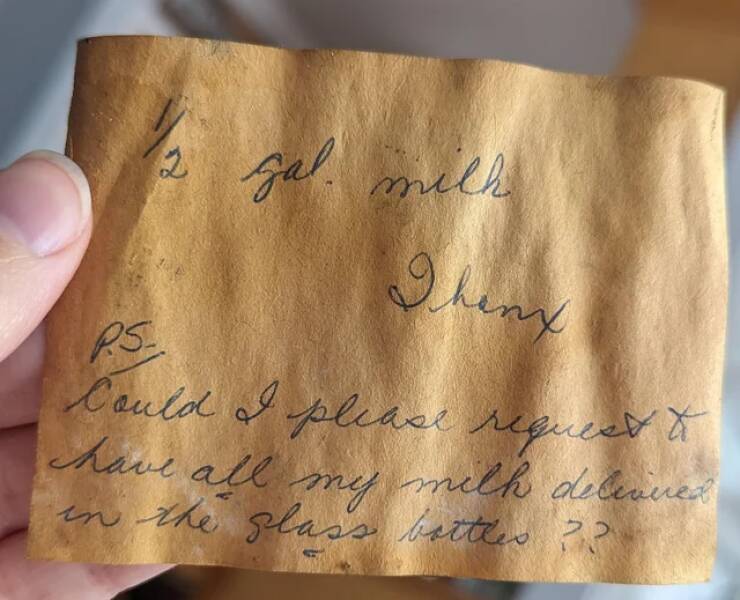 1/2 gal. milk
Thanx
P.S.
Could I please request to
have all my milk delivered
in the glass bottles ??